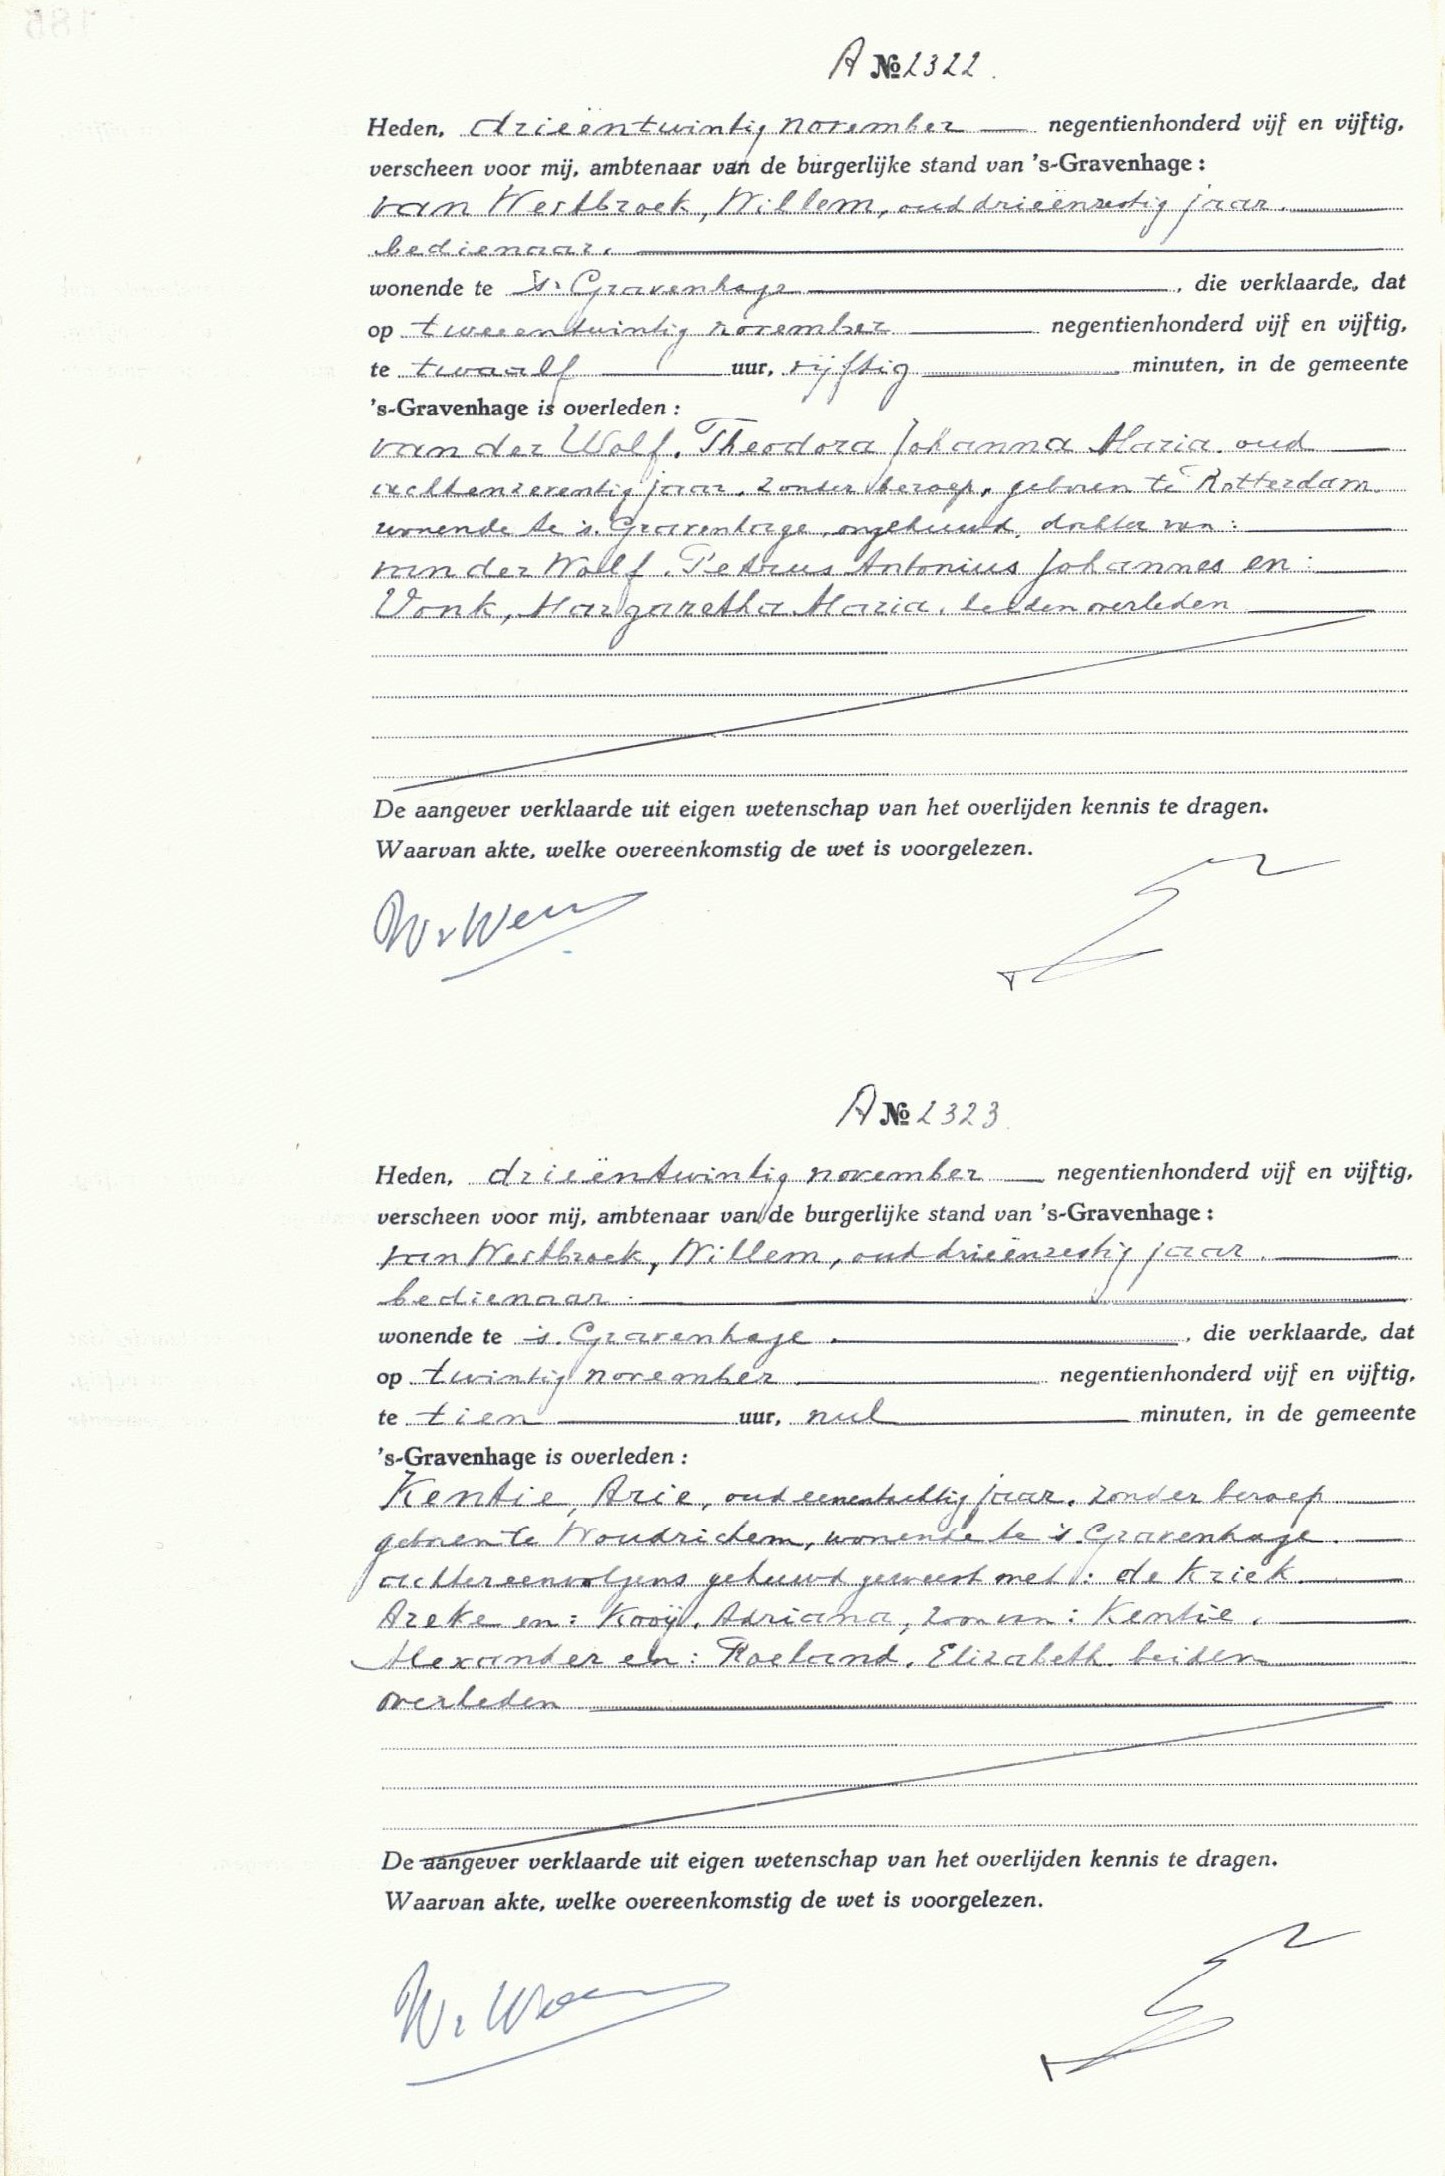 A № 2322.
Heden, drieëntwintig november negentienhonderd vijf en vijftig,
verscheen voor mij, ambtenaar van de burgerlijke stand van 's-Gravenhage :
van Westbroek, Willem, oud drieënzestig jaar.
bedienaar,
wonende te 's-Gravenhage , die verklaarde, dat
op tweeentwintig november negentienhonderd vijf en vijftig,
te twaalf uur, vijftig minuten, in de gemeente
's-Gravenhage is overleden :
van der Wolf, Theodora Johanna Maria, oud
achtenzeventig jaar, zonder beroep, geboren te Rotterdam
wonende te 's-Gravenhage, ongehuwd, dochter van :
van der Wolf, Petrus Antonius Johannes en :
Vonk, Margaretha Maria, beiden overleden
De aangever verklaarde uit eigen wetenschap van het overlijden kennis te dragen.
Waarvan akte, welke overeenkomstig de wet is voorgelezen.
A № 2323.
Heden, drieëntwintig november negentienhonderd vijf en vijftig,
verscheen voor mij, ambtenaar van de burgerlijke stand van 's-Gravenhage :
van Westbroek, Willem, oud drieënzestig jaar.
bedienaar.
wonende te 's-Gravenhage. , die verklaarde, dat
op twintig november negentienhonderd vijf en vijftig,
te tien uur, nul minuten, in de gemeente
's-Gravenhage is overleden :
Kentie, Arie, oud eenentachtig jaar, zonder beroep
geboren te Woudrichem, wonende te 's-Gravenhage.
achtereenvolgens gehuwd geweest met : de Kriek.
Areke en : Kooij, Adriana, zoon van : Kentie,
Alexander en : Roeland, Elizabeth, beiden
overleden
De aangever verklaarde uit eigen wetenschap van het overlijden kennis te dragen.
Waarvan akte, welke overeenkomstig de wet is voorgelezen.